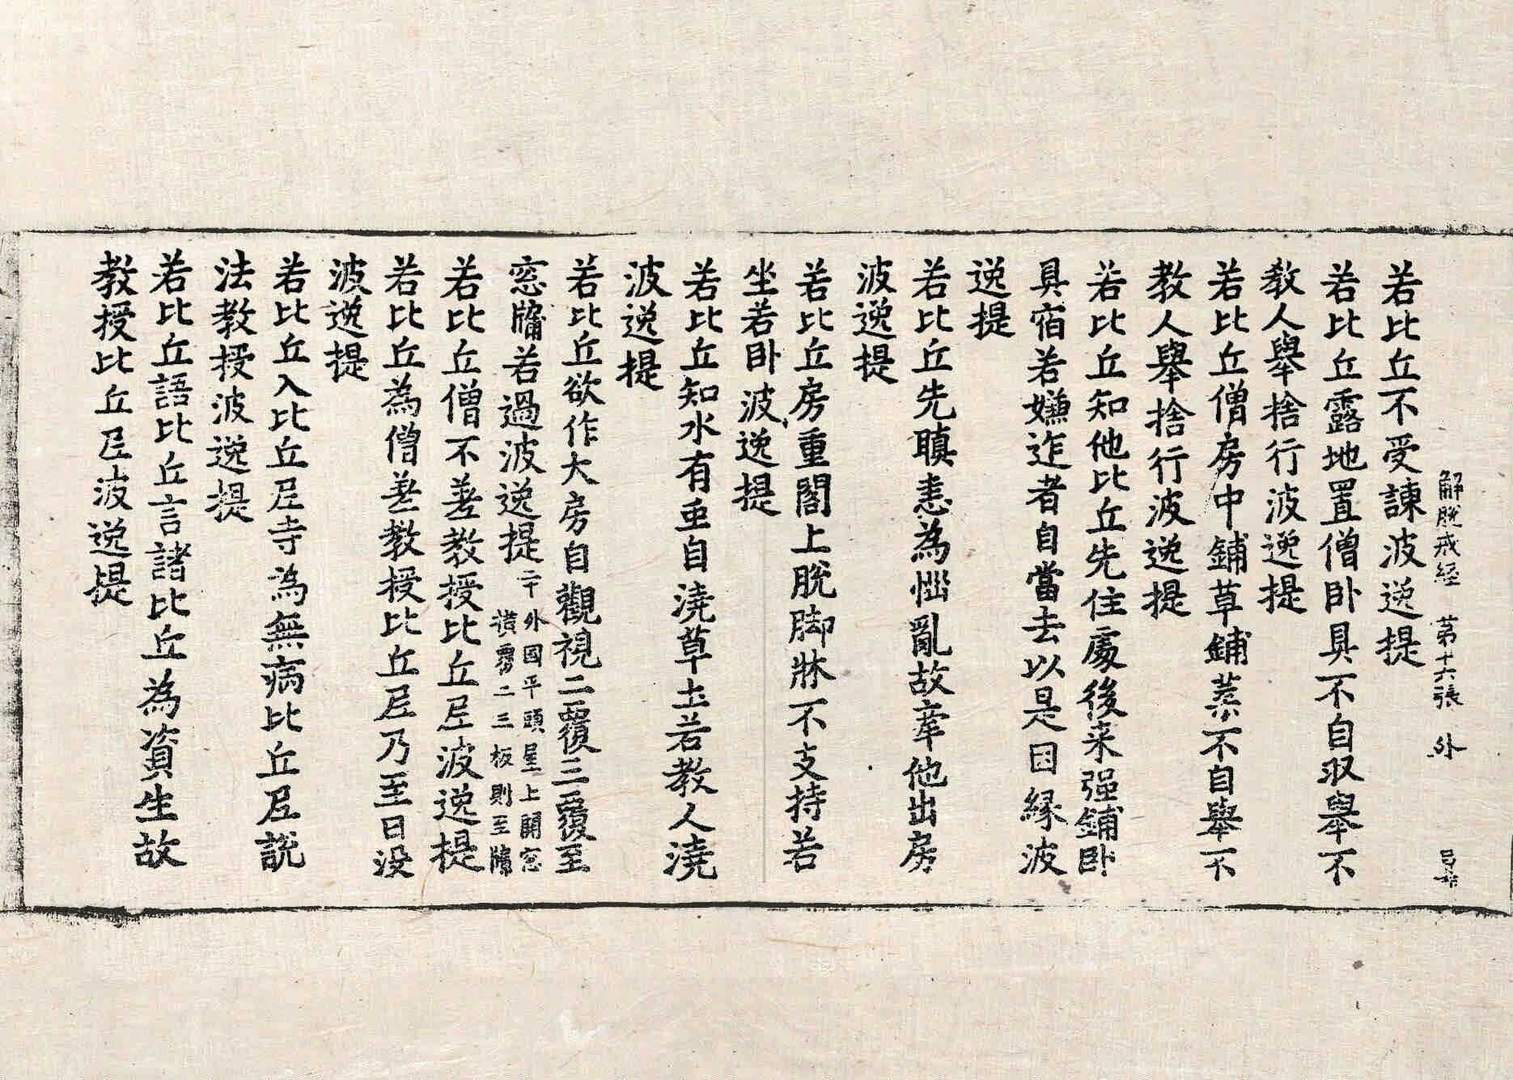 解脫戒經 第十六張 外
若比丘不受諫波逸提
若比丘露地置僧卧具不自収舉不
教人舉捨行波逸提
若比丘僧房中鋪草鋪蓐不自舉不
教人舉捨行波逸提
若比丘知他比丘先住處後来强鋪卧
具宿若嫌迮者自當去以是因縁波
逸提
若比丘先瞋恚為惱亂故牽他出房
波逸提
若比丘房重閣上脫脚牀不支持若
坐若卧波逸提
若比丘知水有虫自澆草土若教人澆
波逸提
若比丘欲作大房自觀視二覆三覆至
窓牖若過波逸提二十外國平頭屋上開窓
横覆二三板則至牖
若比丘僧不差教授比丘尼波逸提
若比丘為僧差教授比丘尼乃至日没
波逸提
若比丘入比丘尼寺為無病比丘尼說
法教授波逸提
若比丘語比丘言諸比丘為資生故
教授比丘尼波逸提